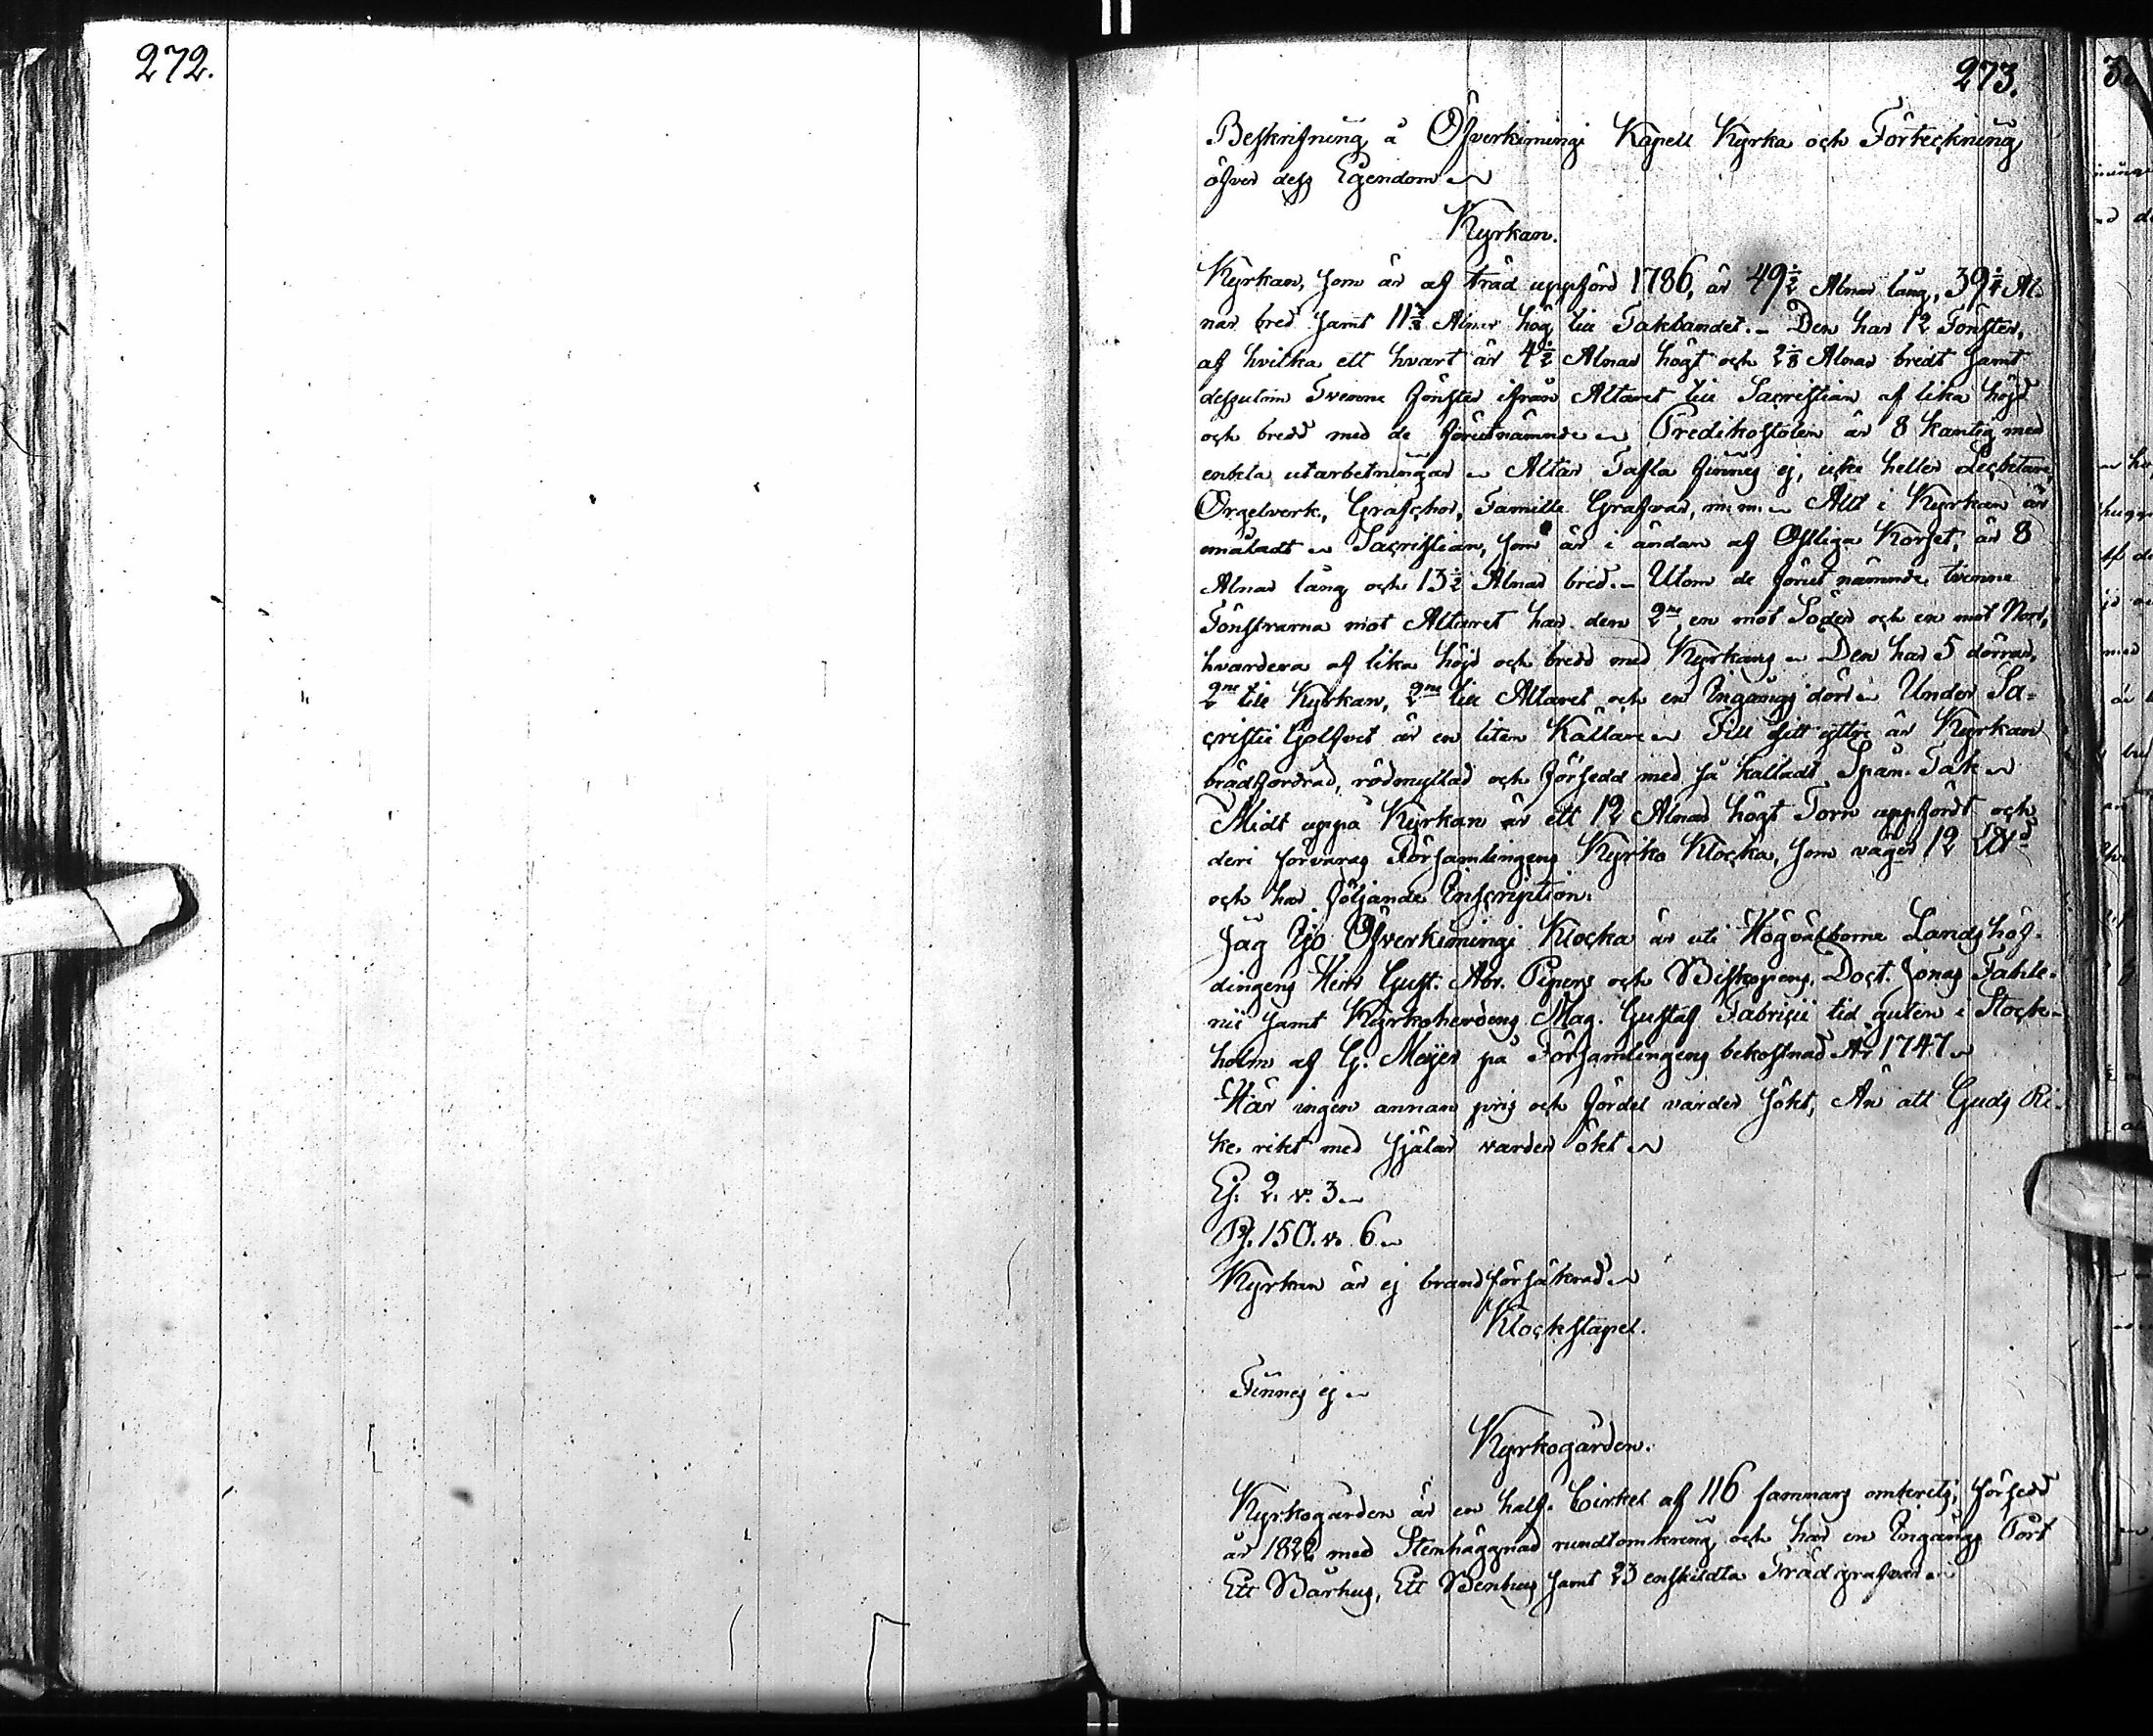 272.
273.
Beskrifning å Öfverkimingi Kapell Kyrka och Förteckning
öfver dess Egendom
Kyrkan.
Kyrkan, som är af träd uppförd 1786, är 49½ Alnar lång, 39¼ Al-
nar bred samt 11½ Alnar hög till Takbandet. - Den har 12 Fönster,
af hvilka ett hvart är 4½ Alnar högt och 2⅛ Alnar bredt samt
dessutom Tvenne fönster ifrån Altaret till Sacristian af lika höjd
och bredd med de förutnämnde Predikostolen är 8 kantig med
enkla utarbetningar Altar Tafla finnes ej, icke heller Lecktare,
Orgelverk, Grafchor, Famille Grafvar, m.m. Allt i Kyrkan är
omåladt Sacristian, som är i ändan af Östliga Korset, är 8
Alnar lång och 13½ Alnar bred. - Utom de förut nämnde tvenne
Fönstrarna mot Altaret har den 2ne, en mot Söder och en mot Norr,
hvardera af lika höjd och bredd med Kyrkans Den har 5 dörrar,
2ne till Kyrkan, 2ne till Altaret och en Ingångs dörr Under Sa=
cristie Golfvet är en liten Källare Till sitt yttre är Kyrkan
brädfordrad, rödmyllad och försedd med så kalladt Spån-Tak
Midt uppå Kyrkan är ett 12 Alnar högt Torn uppfördt och
deri förvaras Församlingens Kyrko Klocka, som väger 12
och har följande Inscription:
Jag Ijo Öfverkimingi Klocka är uti Högvälborne Landshöf-
dingens Herr Gust. Abr. Pipers och Biskopens, Doct. Jonas Fahle-
nii samt Kyrkoherdens Mag. Gustaf Fabricii tid guten i Stock-
holm af G. Meyer på Församlingens bekostnad År 1747
Här ingen annan pris och fördel varder sökt, Än att Guds Ri-
ke rikt med själar varder ökt
Ej. 2. v. 3
Ps. 150. v. 6
Kyrkan är ej brandförsäkrad
Klockstapel.
Finnes ej
Kyrkogården.
Kyrkogården är en half-Cirkel af 116 famnars omkrets, försedd
år 1822 med Stenhäggnad rundtomkring och har en Ingångs Port
Ett Bårhus, Ett Benhus samt 23 enskildta Trädgrafvar